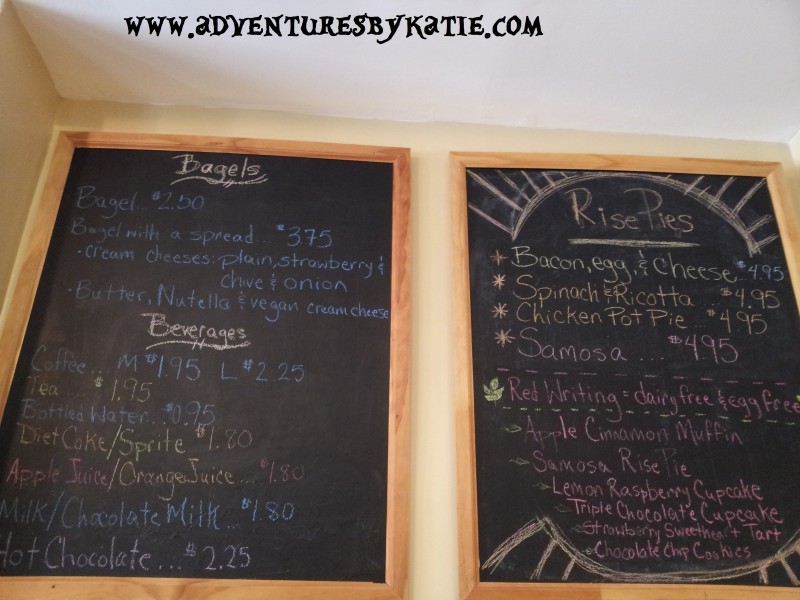 www.adventuresbykatie.com
Bagels
Bagel... $2.50
Bagel with a spread... $3.75
• cream cheeses: plain, strawberry &
chive & onion
• Butter, Nutella & vegan cream cheese
Beverages
Coffee... M $1.95 L $2.25
Tea... $1.95
Bottled Water... $0.95
Diet Coke/Sprite $1.80
Apple Juice/Orange Juice... $1.80
Milk/Chocolate Milk... $1.80
Hot Chocolate... $2.25
Rise Pies
Bacon, egg, & Cheese.. $4.95
Spinach & Ricotta ... $4.95
Chicken Pot Pie... $4.95
Samosa ... $4.95
Red Writing = dairy free & egg free
Apple Cinnamon Muffin
Samosa Rise Pie
Lemon Raspberry Cupcake
Triple Chocolate Cupcake
Strawberry Sweetheart Tart
Chocolate Chip Cookies